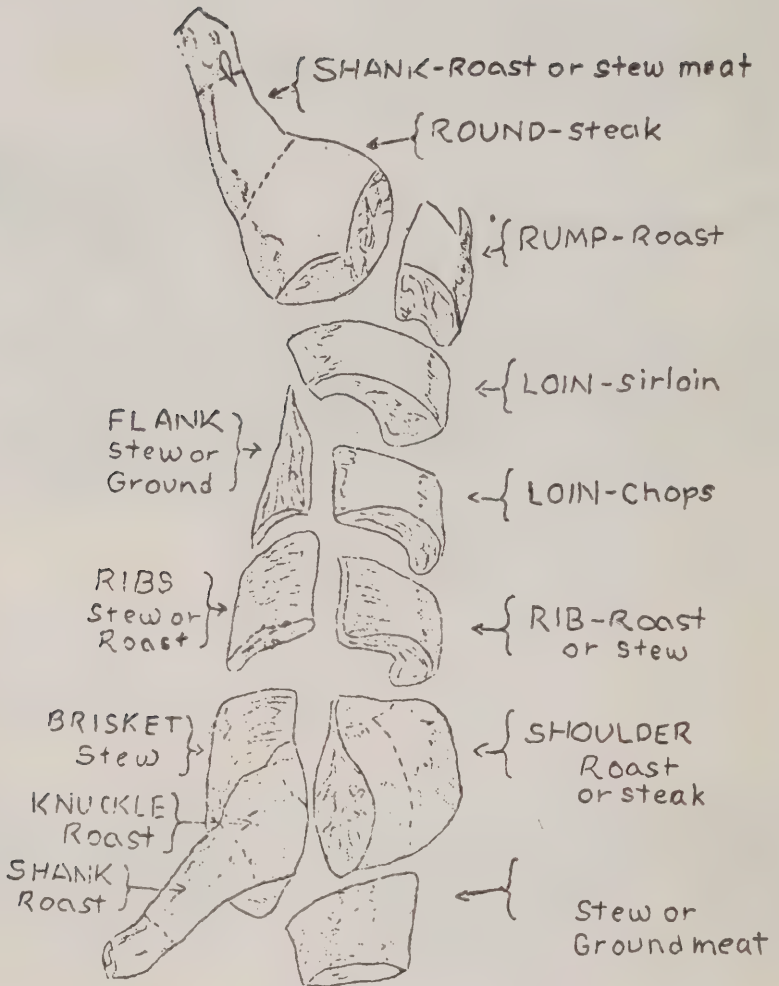 SHANK-Roast or stew meat
ROUND-steak
RUMP-Roast
LOIN-sirloin
FLANK
Stew or
Ground
LOIN-Chops
RIBS
Stew or
Roast
RIB-Roast
or stew
BRISKET
Stew
SHOULDER
Roast
or steak
KNUCKLE
Roast
SHANK
Roast
Stew or
Ground meat